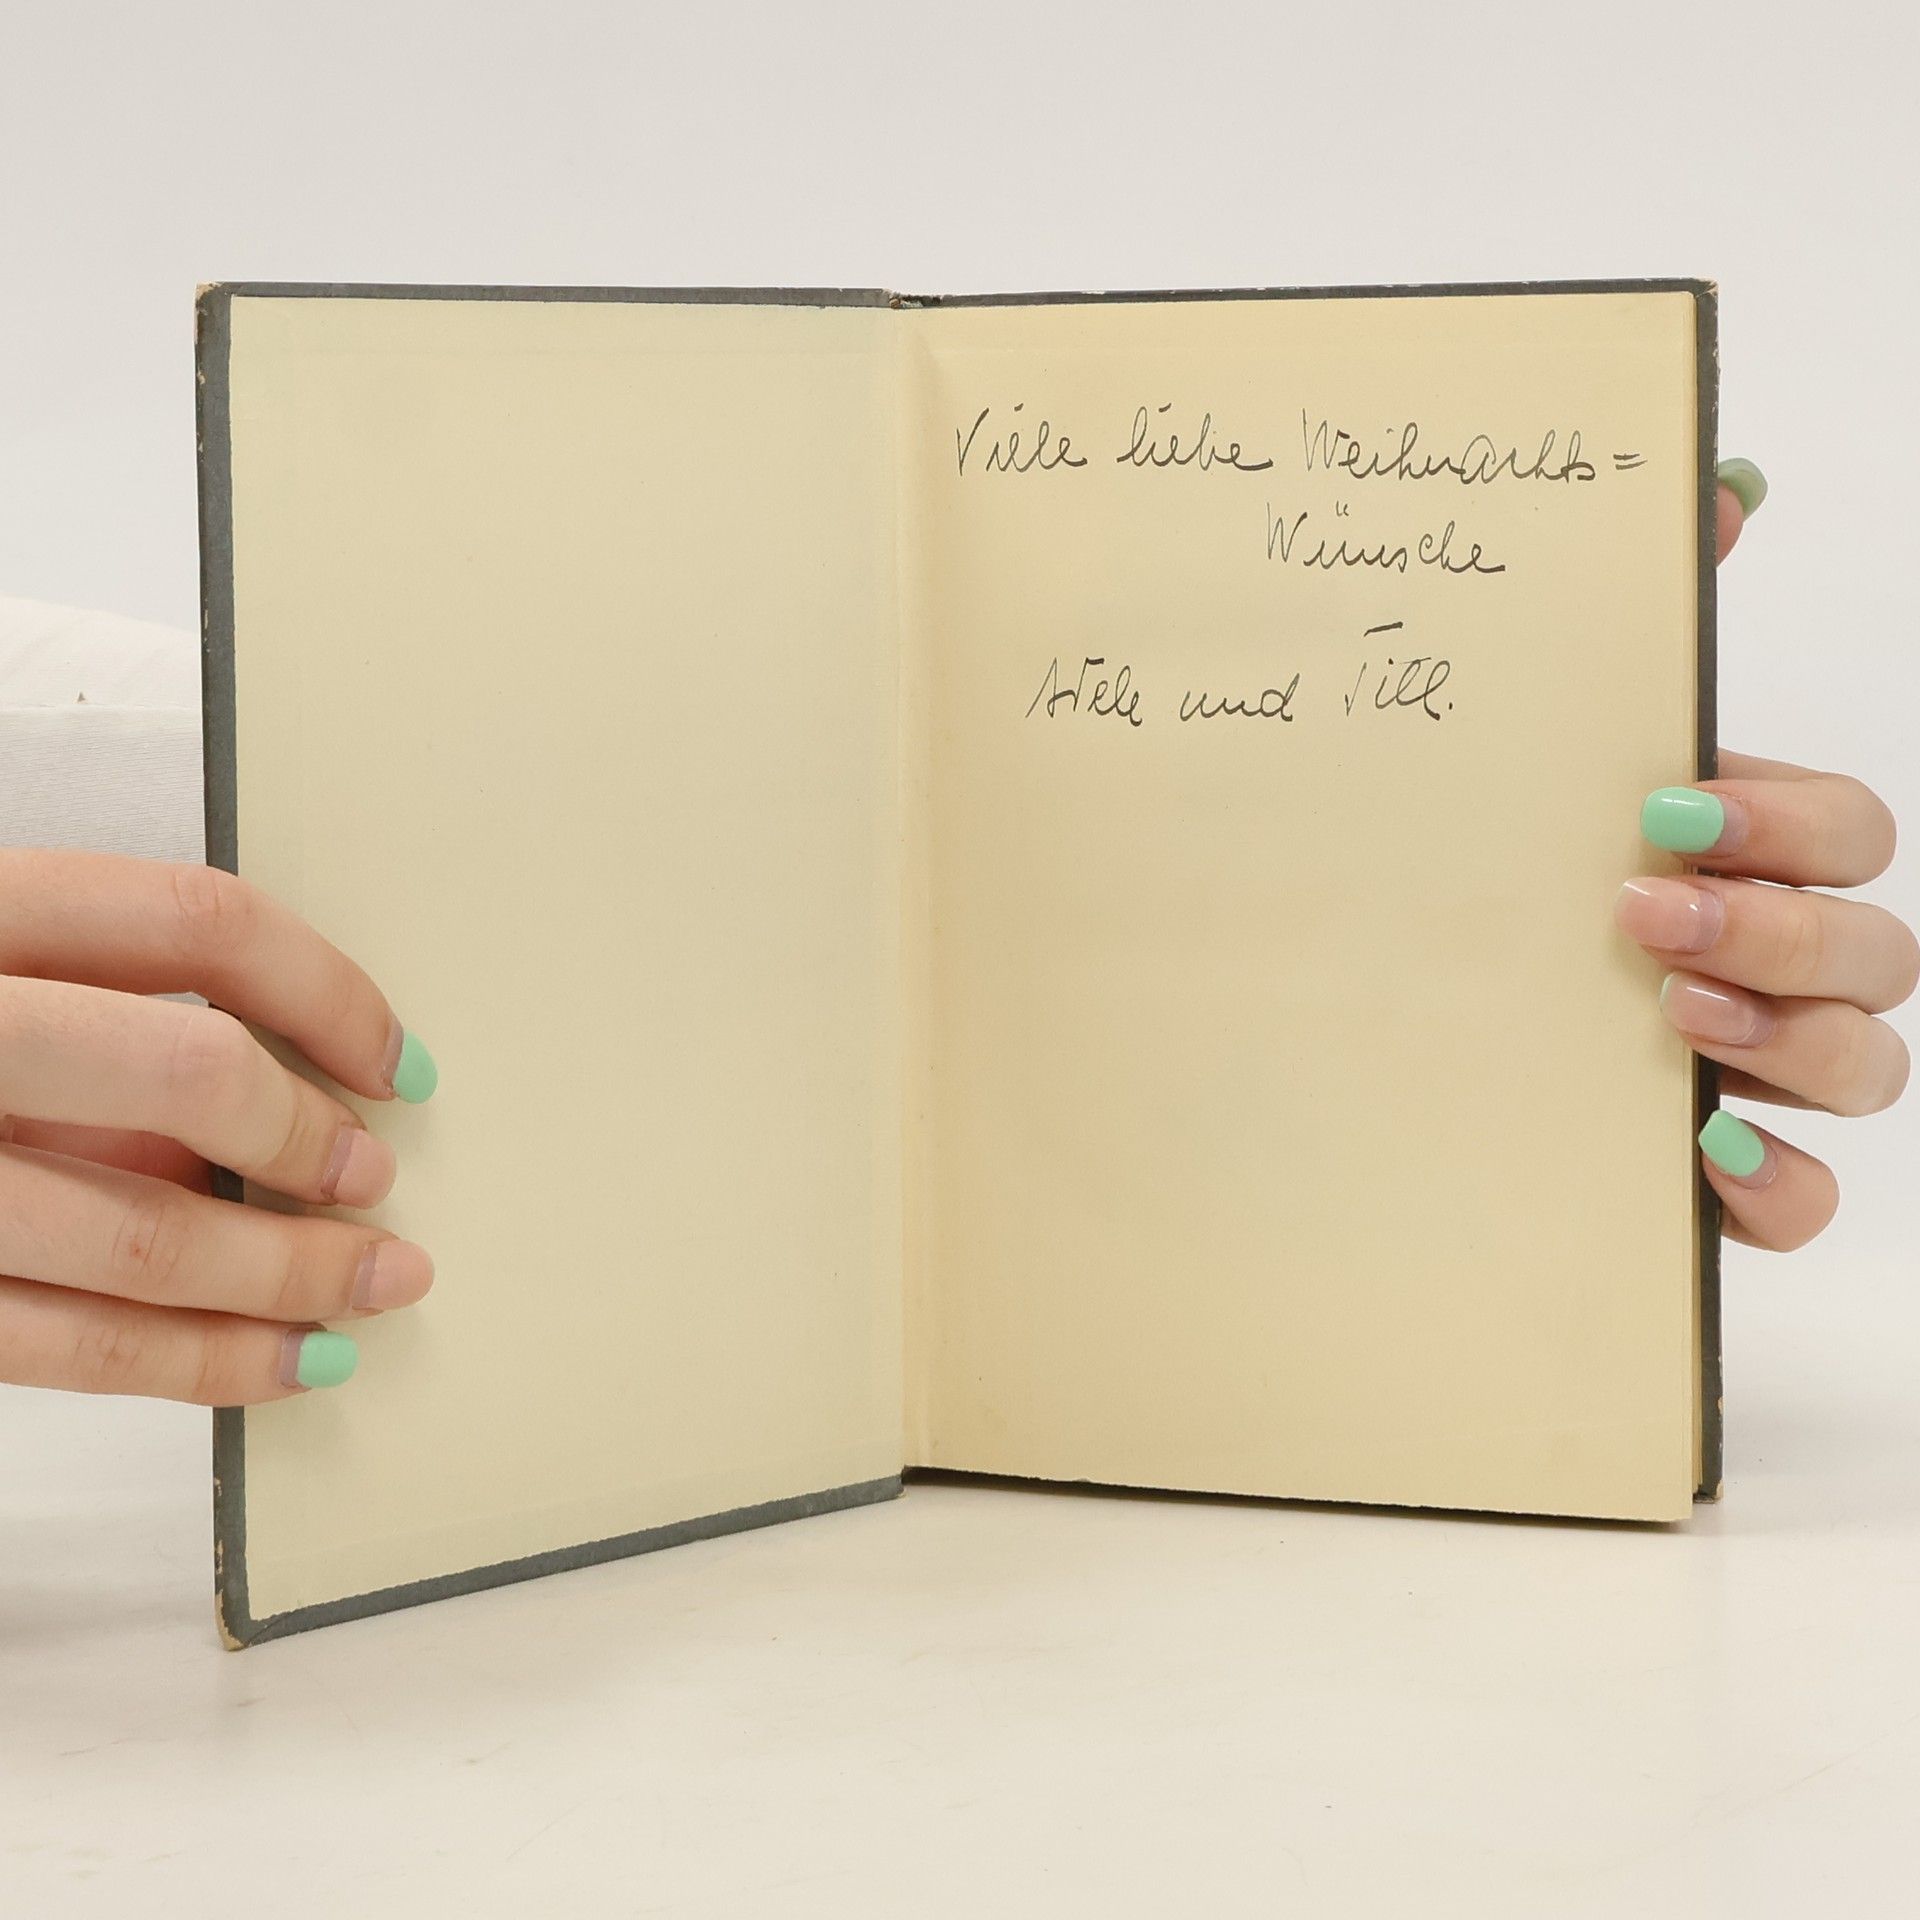 Viele liebe Weihnachts=
Wünsche
Adele und Till.